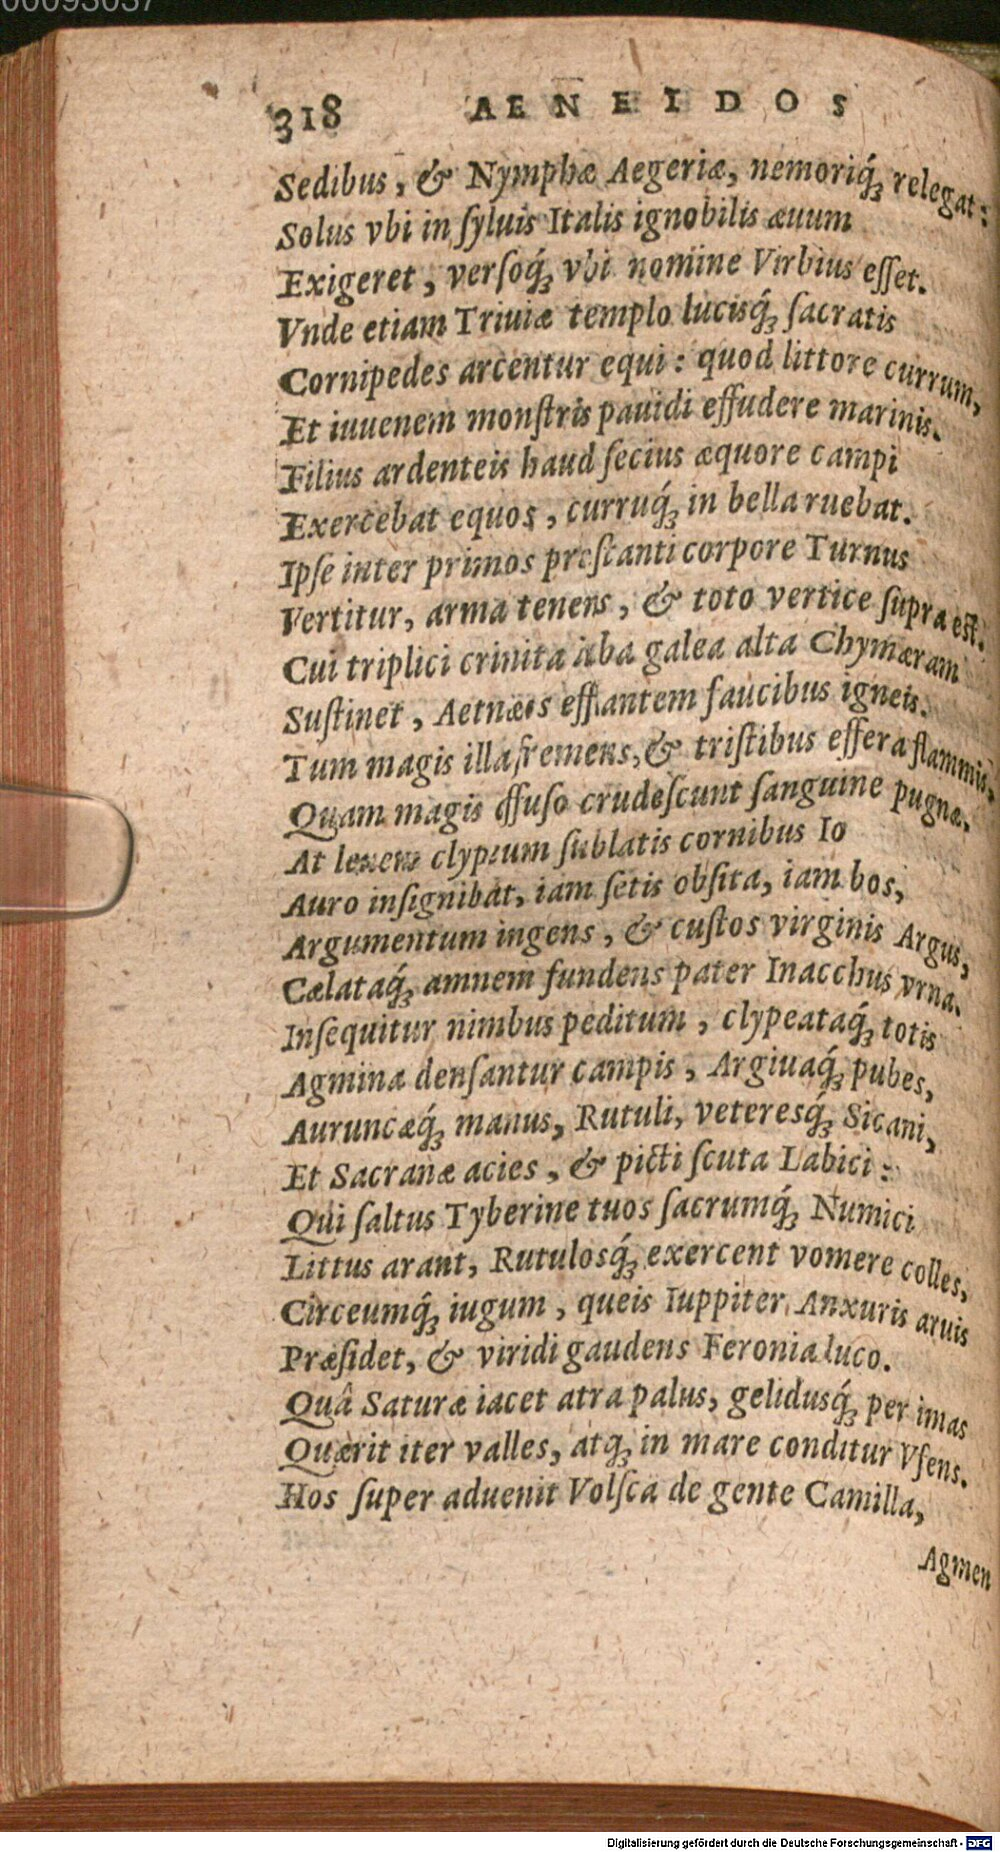 00093037
318 AENEIDOS
Sedibus, & Nymphæ Aegeriæ, nemoriq́ꝫ relegat:
Solus vbi in ſyluis Italis ignobilis æuum
Exigeret, verſoq́ꝫ vbi nomine Virbius eſſet.
Vnde etiam Triuiæ templo lucisq́ꝫ ſacratis
Cornipedes arcentur equi: quod littore currum,
Et iuuenem monſtris pauidi effudere marinis.
Filius ardenteis haud ſecius æquore campi
Exercebat equos, curruq́ꝫ in bella ruebat.
Ipſe inter primos præſtanti corpore Turnus
Vertitur, arma tenens, & toto vertice ſupra eſt.
Cui triplici crinita iuba galea alta Chymæram
Suſtinet, Aetnæos efflantem faucibus igneis.
Tum magis illa fremens, & triſtibus effera flammis,
Quam magis effuſo crudeſcunt ſanguine pugnæ.
At leuem clypeum ſublatis cornibus Io
Auro inſignibat, iam ſetis obſita, iam bos,
Argumentum ingens, & cuſtos virginis Argus,
Cælataq́ꝫ amnem fundens pater Inacchus vrna.
Inſequitur nimbus peditum, clypeataq́ꝫ totis
Agmina denſantur campis, Argiuaq́ꝫ pubes,
Auruncæq́ꝫ manus, Rutuli, veteresq́ꝫ Sicani,
Et Sacranæ acies, & picti ſcuta Labici:
Qui ſaltus Tyberine tuos ſacrumq́ꝫ Numici
Littus arant, Rutulosq́ꝫ exercent vomere colles,
Circeumq́ꝫ iugum, queis Iuppiter Anxuris aruis
Præſidet, & viridi gaudens Feronia luco.
Quâ Saturæ iacet atra palus, gelidusq́ꝫ per imas
Quærit iter valles, atqꝫ in mare conditur Vfens.
Hos ſuper aduenit Volſca de gente Camilla,
Agmen
Digitalisierung gefördert durch die Deutsche Forschungsgemeinschaft - DFG